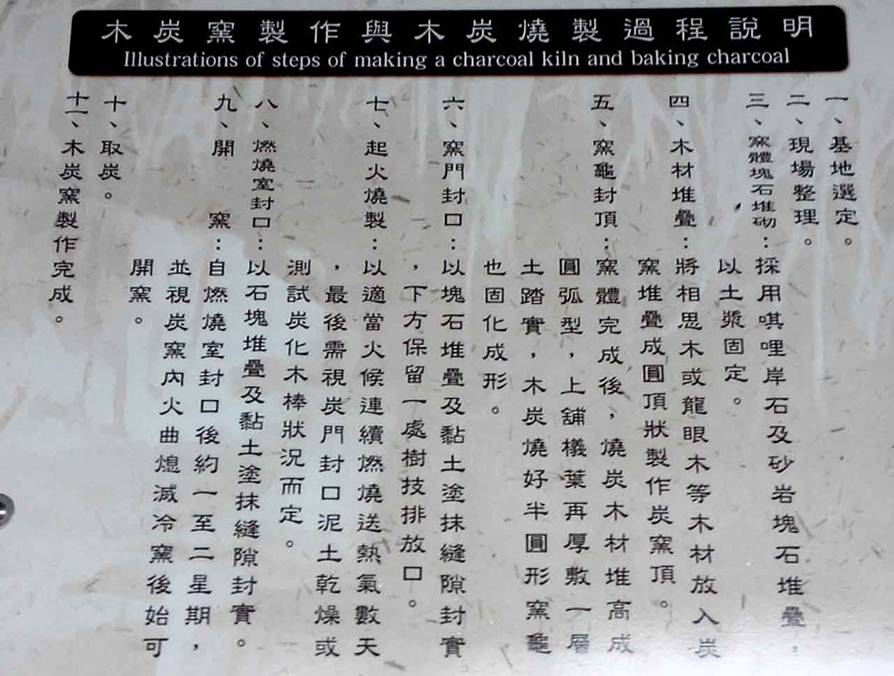 木炭窯製作與木炭燒製過程說明
Illustrations of steps of making a charcoal kiln and baking charcoal
一、基地選定。
二、現場整理。
三、窯體塊石堆砌：採用唭哩岸石及砂岩塊石堆疊，
以土漿固定。
四、木材堆疊：將相思木或龍眼木等木材放入炭
窯堆疊成圓頂狀製作炭窯頂。
五、窯龜封頂：窯體完成後，燒炭木材堆高成
圓弧型，上舖欉葉再厚敷一層
土踏實，木炭燒好半圓形窯龜
也固化成形。
六、窯門封口：以塊石堆疊及黏土塗抹縫隙封實
，下方保留一處樹技排放口。
七、起火燒製：以適當火候連續燃燒送熱氣數天
，最後需視炭門封口泥土乾燥或
測試炭化木棒狀況而定。
八、燃燒室封口：以石塊堆疊及黏土塗抹縫隙封實。
九、開窯：自燃燒室封口後約一至二星期，
並視炭窯內火曲熄滅冷窯後始可
開窯。
十、取炭。
十一、木炭窯製作完成。